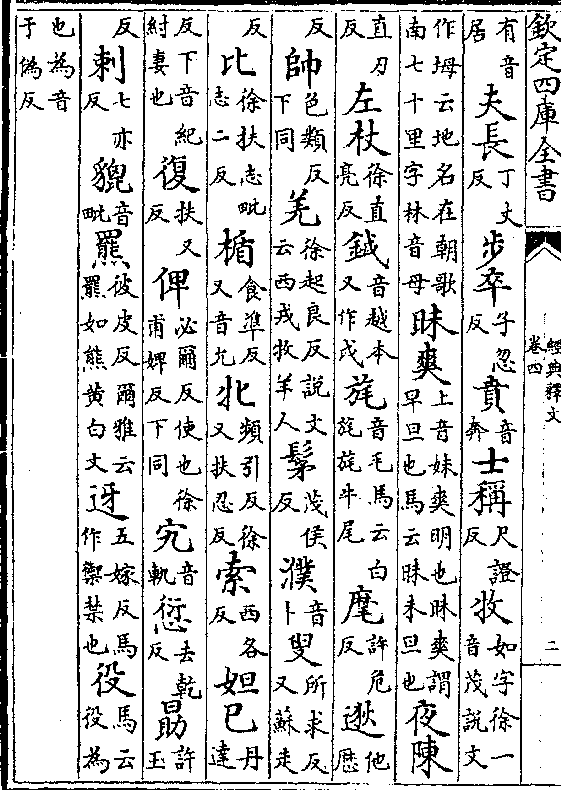 欽定四庫全書
經典釋文
卷四
二
有音居夫長丁丈反步卒子忽反賁音奔士稱尺證反牧如字徐一音茂說文
作坶云地名在朝歌南七十里字林音母昧爽上音妹爽明也昧爽謂早旦也馬云昧未旦也夜陳
直刃反左杖徐直亮反鉞音越本又作戉旄音毛馬云白旄旄牛尾麾許危反逖他歷
反帥色類反下同羌徐起良反說文云西戎牧羊人髳茂侯反濮音卜叟所求反又蘇走
反比徐扶志毗志二反楯食準反又音允牝頻引反徐又扶忍反索西各反妲己丹達
反下音紀紂妻也復扶又反俾必爾反使也徐甫婢反下同宄音軌愆去乾反勗許玉
反刺七亦反貔音毗羆彼皮反爾雅云羆如熊黄白文迓五嫁反馬作禦禁也役馬云役為
也為音于偽反